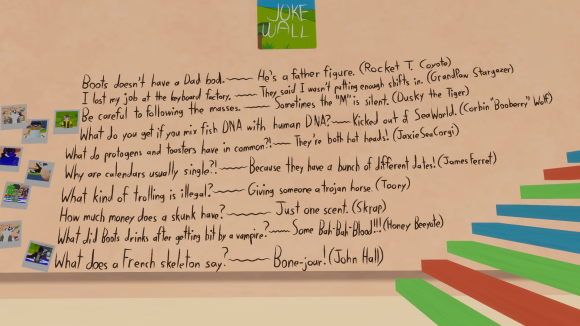 JOKE
WALL
Boots doesn't have a Dad bod.~~~ He's a father figure. (Rocket T. Coyote)
I lost my job at the keyboard factory.~~~ They said I wasn't putting enough shifts in. (Grandpaw Stargazer)
Be careful to following the masses.~~~ Sometimes the "M" is silent. (Dusky the Tiger)
What do you get if you mix fish DNA with human DNA?~~~ Kicked out of SeaWorld. (Corbin "Booberry" Wolf)
What do protogens and toasters have in common?!~~~ They're both hot heads! (JaxieSeaCorgi)
Why are calendars usually single?!~~~ Because they have a bunch of different dates! (James Ferret)
What kind of trolling is illegal?~~~ Giving someone a trojan horse. (Toony)
How much money does a skunk have?~~~ Just one scent. (Skrap)
What did Boots drinks after getting bit by a vampire?~~~ Some Bah-Bah-Blood!!! (Honey Beeyote)
What does a French skeleton say?~~~ Bone-jour! (John Hall)